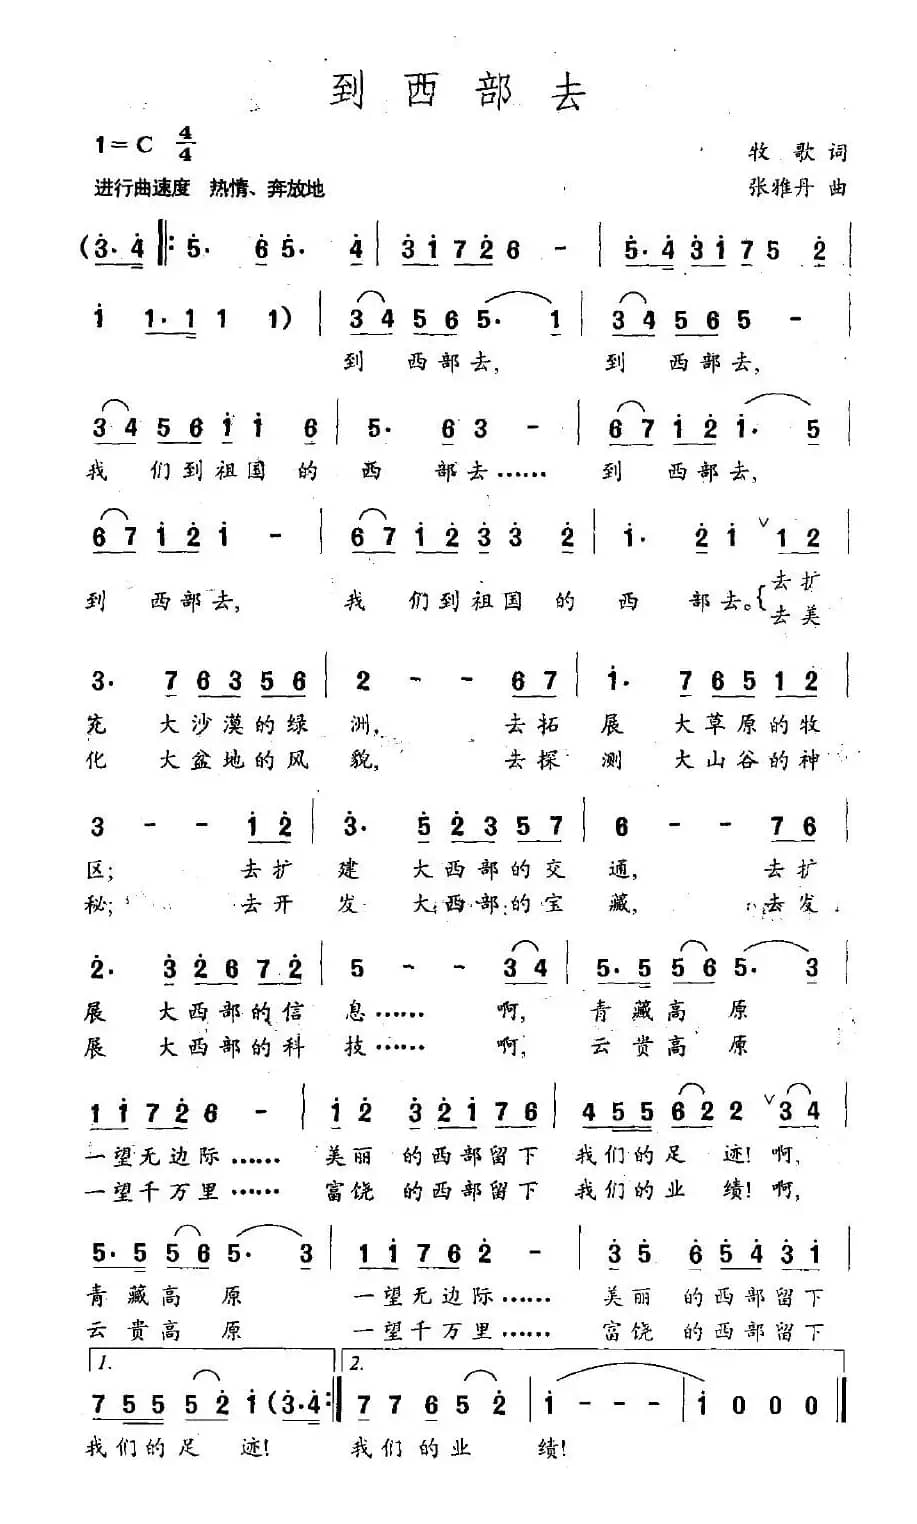 到西部去
1=C 4/4
牧歌词
进行曲速度 热情、奔放地
张雅丹 曲
(3·4 ‖: 5· 6 5· 4 | 3 1 7 2 6 - | 5·4 3 1 7 5 2 |
1 1·1 1 1) | 3 4 5 6 5· 1 | 3 4 5 6 5 - |
到 西部去, 到 西部去,
3 4 5 6 1 1 6 | 5· 6 3 - | 6 7 1 2 1· 5 |
我 们到祖国的 西 部去…… 到 西部去,
6 7 1 2 1 - | 6 7 1 2 3 3 2 | 1· 2 1 ∨ 1 2 |
到 西部去, 我 们到祖国的 西 部去。{去扩
去美
3· 7 6 3 5 6 | 2 - - 6 7 | 1· 7 6 5 1 2 |
充 大沙漠的绿 洲, 去拓 展 大草原的牧
化 大盆地的风 貌, 去探 测 大山谷的神
3 - - 1 2 | 3· 5 2 3 5 7 | 6 - - 7 6 |
区; 去扩 建 大西部的交 通, 去扩
秘; 去开 发 大西部的宝 藏, 去发
2· 3 2 6 7 2 | 5 - - 3 4 | 5·5 5 6 5· 3 |
展 大西部的信 息…… 啊, 青藏高 原
展 大西部的科 技…… 啊, 云贵高 原
1 1 7 2 6 - | 1 2 3 2 1 7 6 | 4 5 5 6 2 2 ∨ 3 4 |
一望无边际…… 美丽 的西部留下 我们的足 迹! 啊,
一望千万里…… 富饶 的西部留下 我们的业 绩! 啊,
5·5 5 6 5· 3 | 1 1 7 6 2 - | 3 5 6 5 4 3 1 |
青藏高 原 一望无边际…… 美丽 的西部留下
云贵高 原 一望千万里…… 富饶 的西部留下
1. 2.
7 5 5 5 2 1 (3·4 :‖ 7 7 6 5 2 | 1 - - - | 1 0 0 0 ‖
我们的足 迹! 我们 的业 绩!